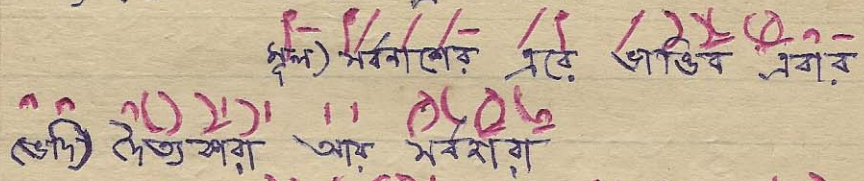 মূল) সর্বনাশের এরে ভাঙিব এবার
ভেদি) দৈত্যকারা আর সর্বহারা